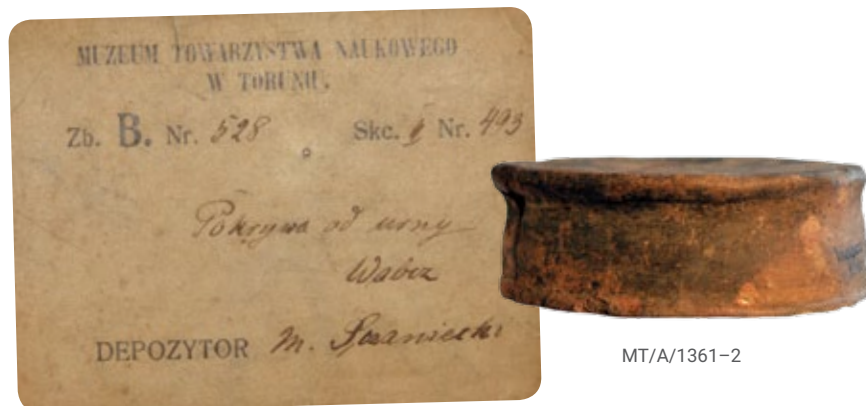 MUZEUM TOWARZYSTWA NAUKOWEGO
W TORUNIU.
Zb. B. Nr. 528 Skc. I Nr. 493
Pokrywa od urny
Wabcz
DEPOZYTOR M. Sczaniecki
MT/A/1361–2